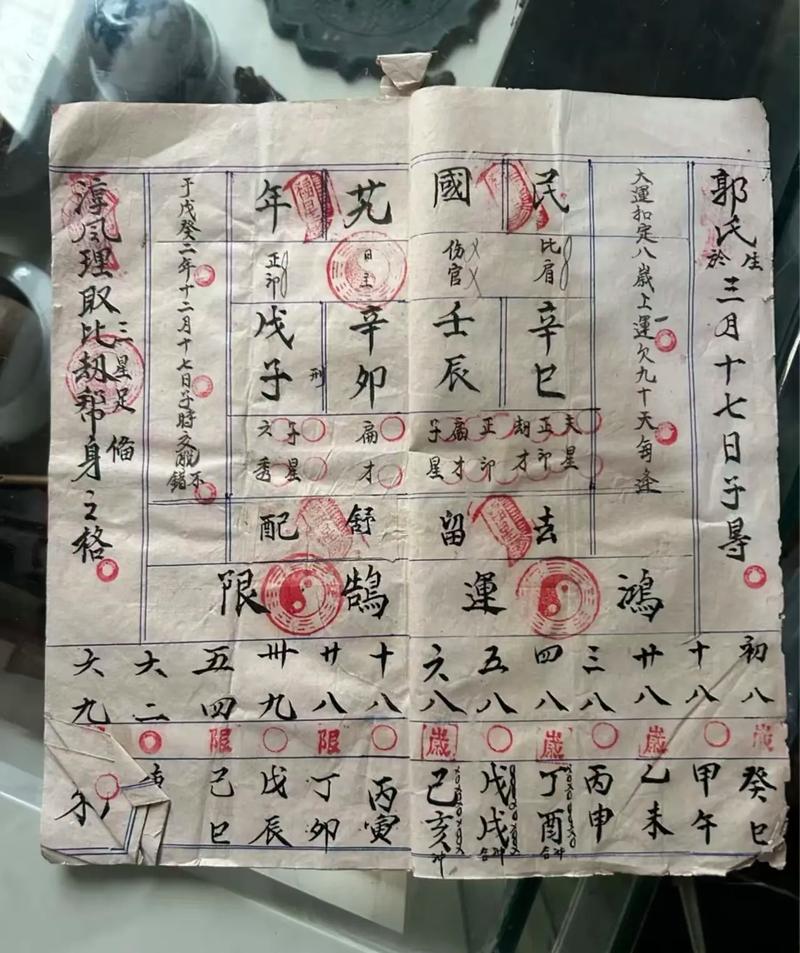 郭氏生於三月十七日子㝵
大運扣定八歲上運欠九十天每逢
民國艽年
比肩
伤官
日主
正印
辛巳
壬辰
辛卯
戊子
刑
夫星
正印
劫才
正印
扁才
子星
扁才
子星
六透
去留舒配
鴻運鵠限
于戊癸二年十二月十七日子時交脫不錯
淳風理取比劫幫身之格
三星足俻
初八
十八
廿八
三八
四八
五八
六八
十八
廿八
卅九
五四
六二
六九
歲
歲
歲
歲
限
限
癸巳
甲午
乙未
丙申
丁酉
合冲
戊戌
合冲
己亥
冲
丙寅
丁卯
戊辰
己巳